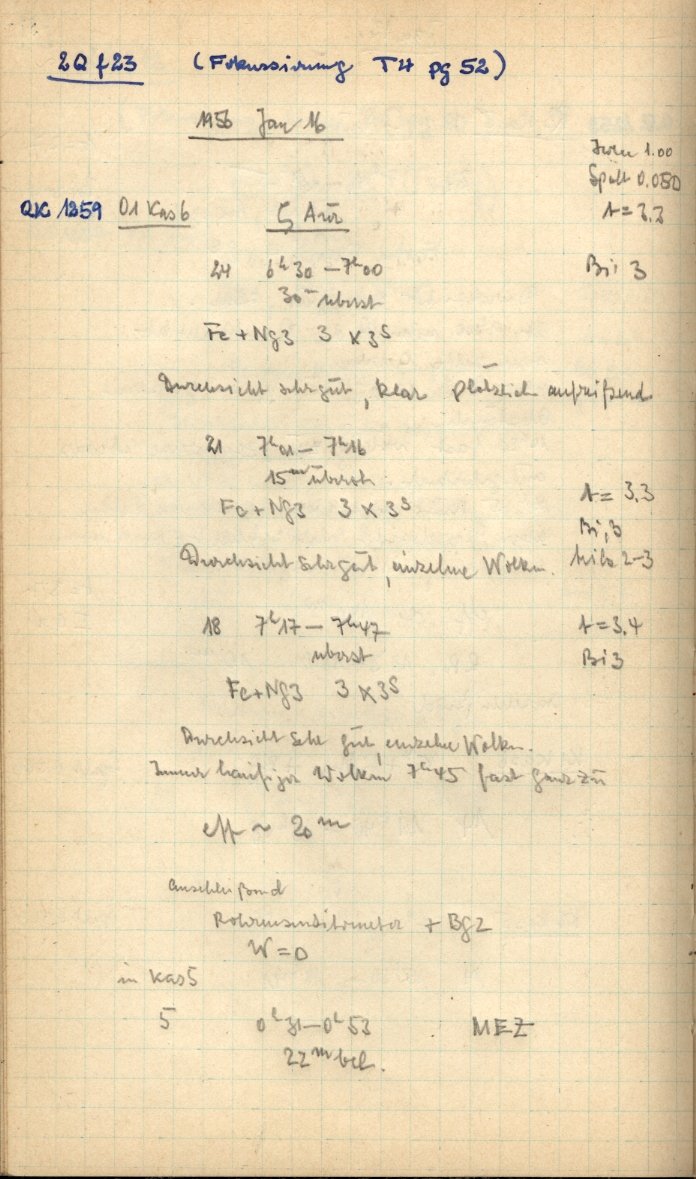 2Q f 23 (Fokussierung T4 pg 52)
1956 Jan 16
1.00
Spalt 0.080
t = 3.3
QK 1259 01 Kas 6 ζ Aur
24 6h30 – 7h00 Bi 3
30m überst
Fe + Ng3 3 x 3s
Durchsicht sehr gut, klar plötzlich aufreißend
21 7h01 – 7h16
15m überst
t = 3.3
Fe + Ng3 3 x 3s
Bi, 3
Durchsicht sehr gut, einzelne Wolken. teils 2–3
18 7h17 – 7h47 t = 3.4
überst Bi 3
Fe + Ng3 3 x 3s
Durchsicht sehr gut, einzelne Wolken.
Immer häufiger Wolken 7h45 fast ganz zu
eff ~ 20m
anschließend
+ Bg2
W = 0
in Kas 5
5 0h31 – 0h53 MEZ
22m bel.